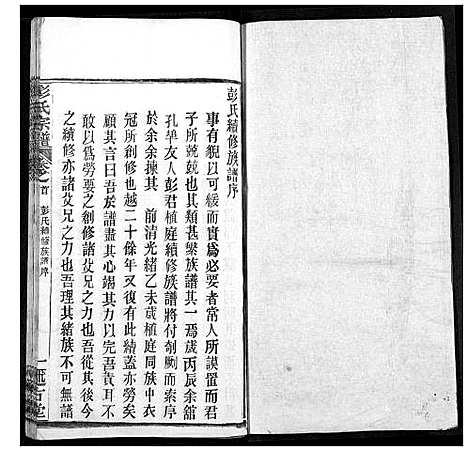 彭氏續修族譜序
事有貌以可緩而實為必要者常人所謨置而君
子所兢兢也其類甚繁族譜其一焉歲丙辰余舘
孔邑友人彭君植庭續修族譜將付剞劂而索序
於余余揀其 前清光緒乙未歲植庭同族中衣
冠所創修也越二十餘年又復有此續蓋亦勞矣
顧其言曰吾族譜盡其心竭其力以完吾責耳不
敢以為勞要之創修諸父兄之力也吾從其後
之續修亦諸父兄之力也吾理其緒族不可無譜
彭氏宗譜
卷首
彭氏續修族譜序
一
堂